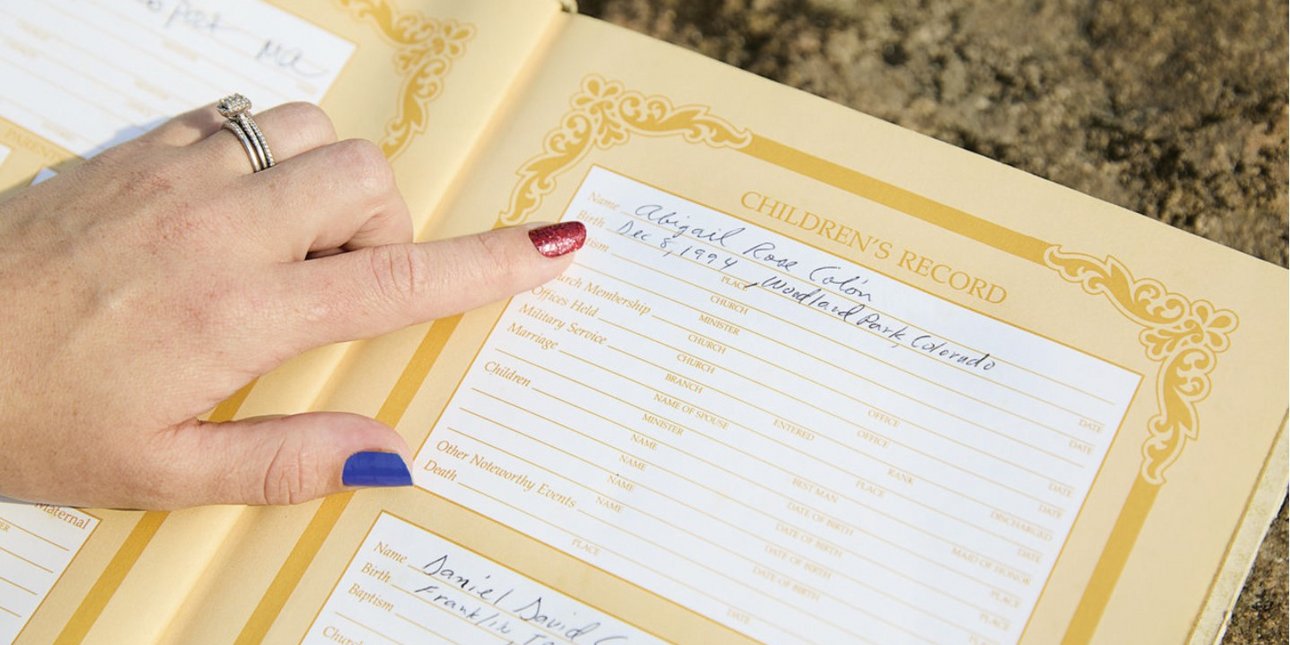 Post Ma
Maternal
CHILDREN'S RECORD
Name Abigail Rose Colón
Birth Dec 8, 1994, Woodland Park, Colorado
PLACE
CHURCH DATE
Church Membership MINISTER DATE
Offices Held CHURCH OFFICE DATE
Military Service CHURCH OFFICE DATE
Marriage BRANCH ENTERED RANK DISCHARGED
NAME OF SPOUSE PLACE DATE
MINISTER BEST MAN MAID OF HONOR
Children NAME DATE OF BIRTH PLACE
NAME DATE OF BIRTH PLACE
NAME DATE OF BIRTH PLACE
NAME DATE OF BIRTH
Other Noteworthy Events
Death
PLACE DATE
Name Daniel David
Birth Franklin,
Baptism